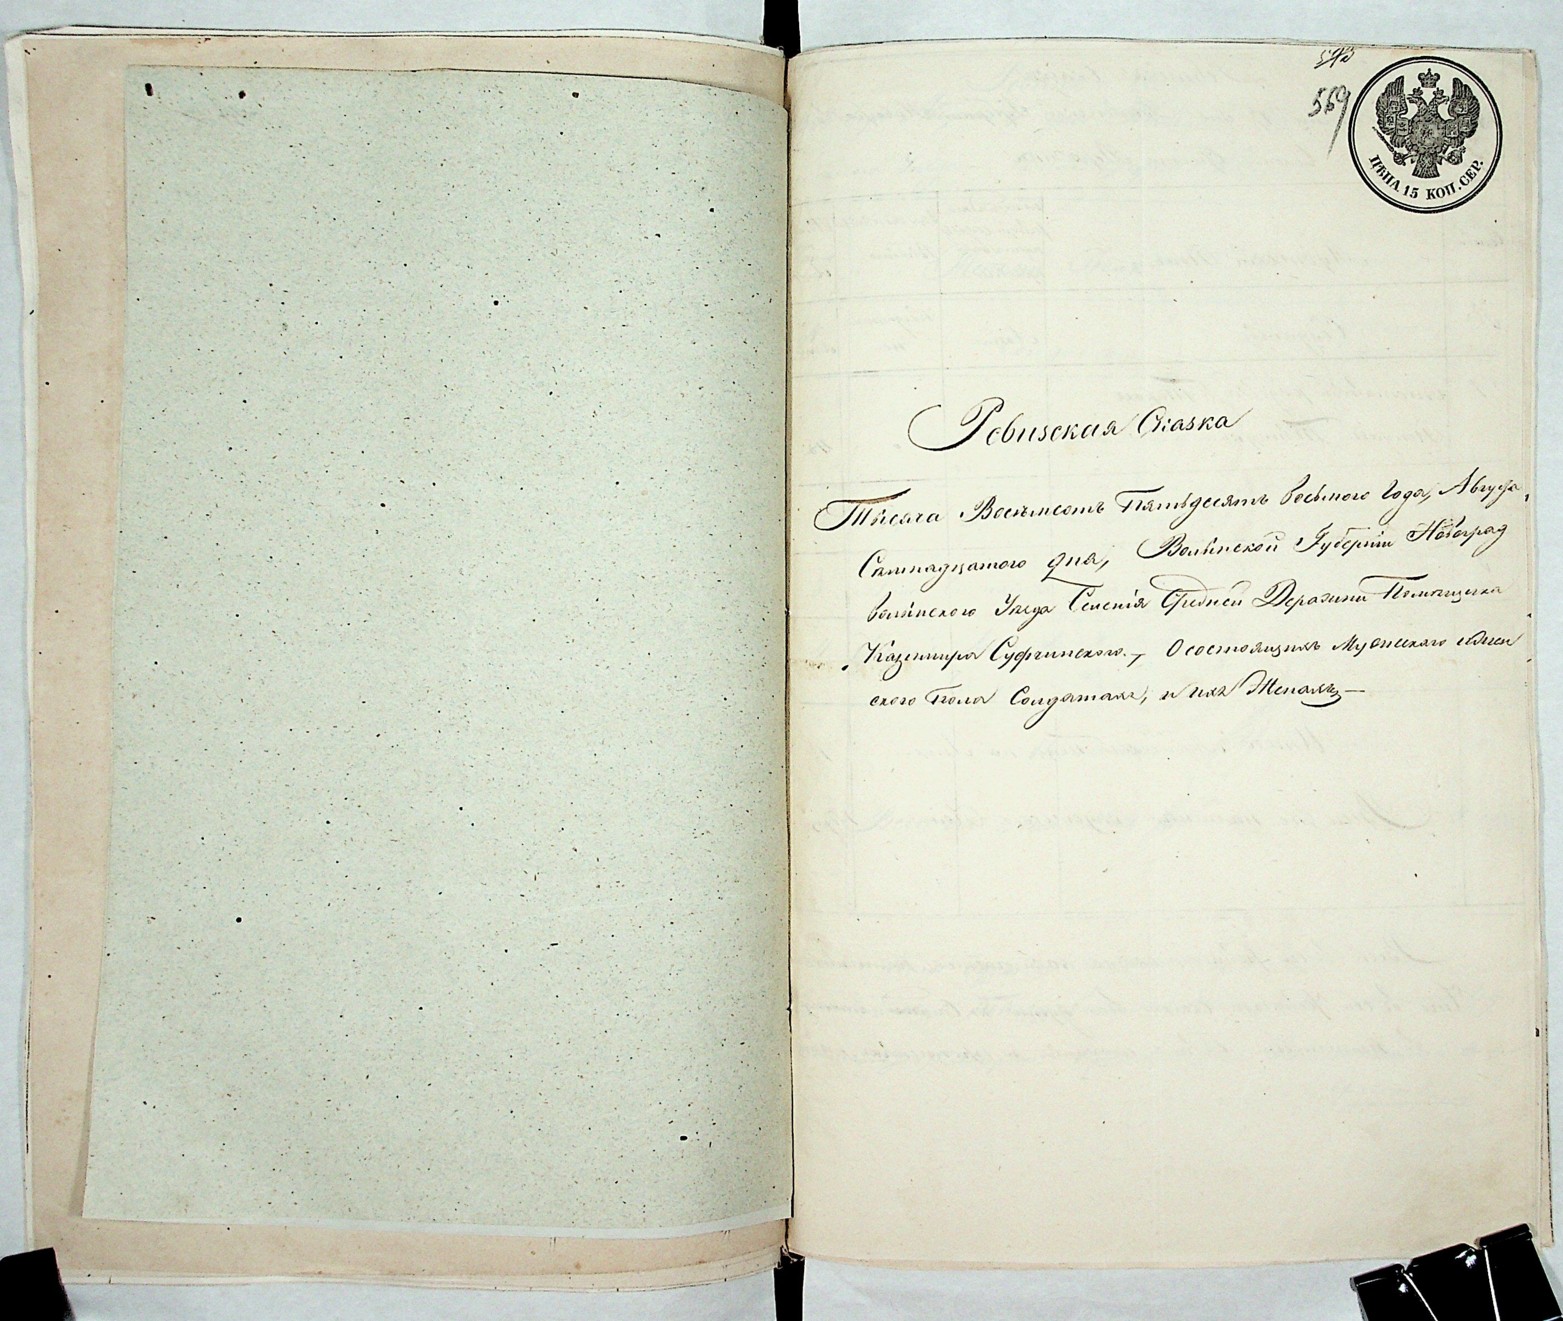 559
ЦѢНА 15 КОП. СЕР.
Ревизская Сказка
Тысяча Восемьсотъ Пятьдесятъ Восьмого Года, Августа
Семнадцатого дня, Волынской Губерніи Новоград
волынского Уезда Селенія Средней Деражни Помещика
Казимира Суфчинского., О состоящихъ Мужеского и Жен
ского пола Солдатахъ, и ихъ Женахъ